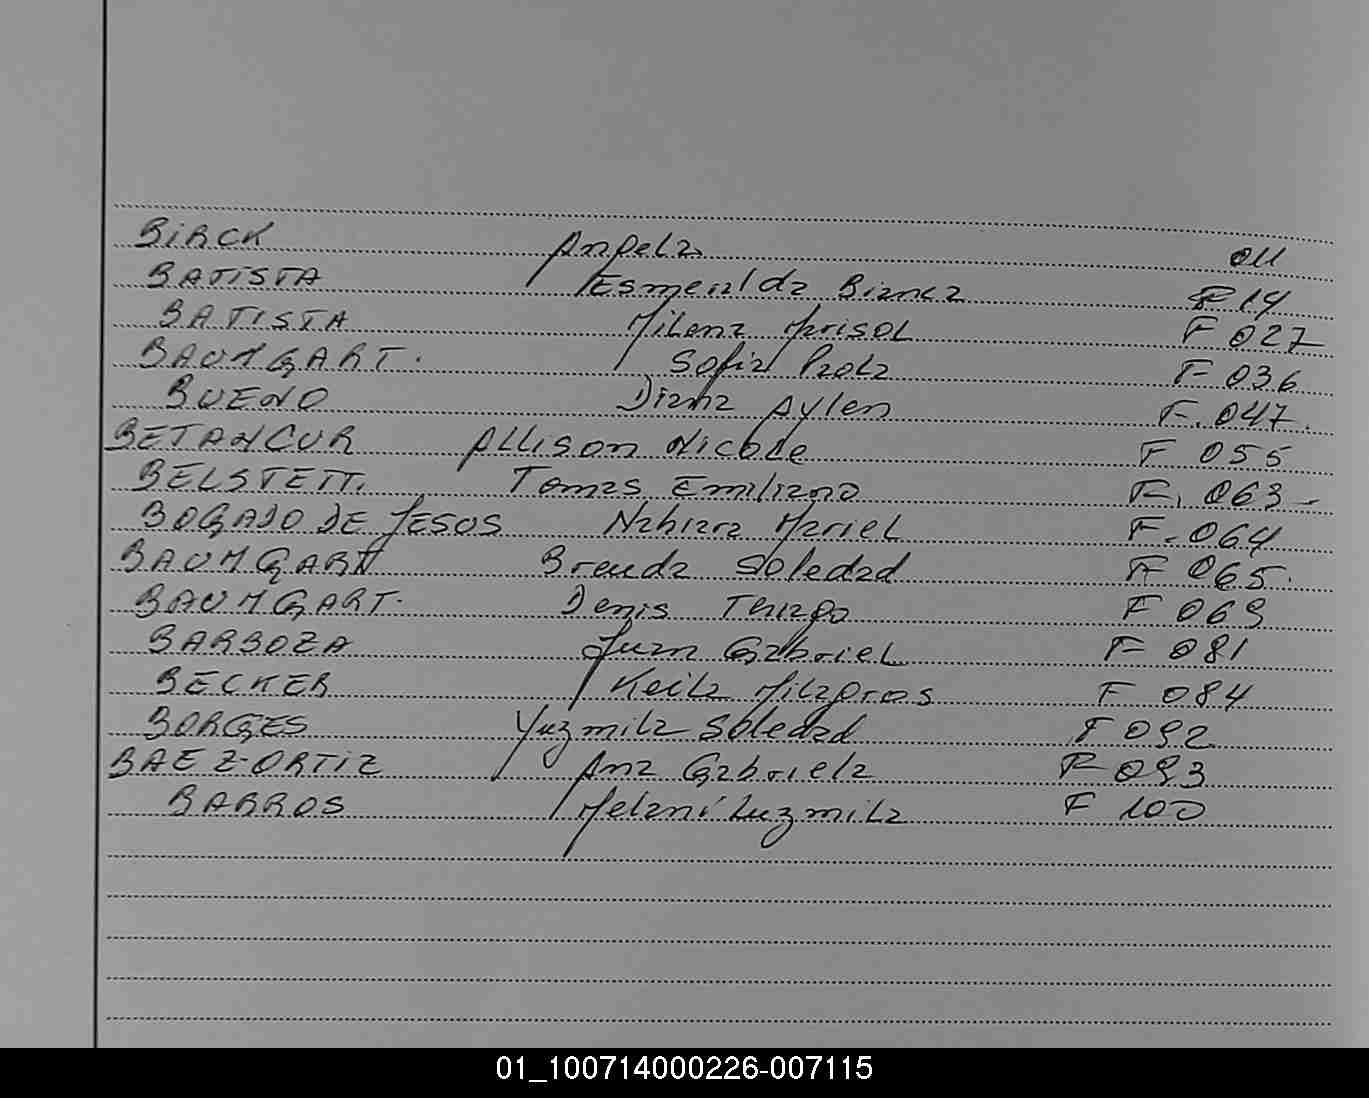 BIRCK Angela 011
BATISTA Esmeralda Bianca F 14
BATISTA Milena Marisol F 027
BAUMGART. Sofia Paola F 036
BUENO Diana Aylen F. 047.
BETANCUR Allison Nicole F 055
BELSTETT. Tomas Emiliano F. 063-
BOGADO DE JESUS Nahiara Mariel F. 064
BAUMGART Brenda Soledad F 065.
BAUMGART. Denis Thiago F 069
BARBOZA Juan Gabriel F 081
BECKER Keila Milagros F 084
BORGES Yuzmila Soledad F 092
BAEZ-ORTIZ Ana Gabriela F 093
BARROS Melaní Luzmila F 100
01_100714000226-007115